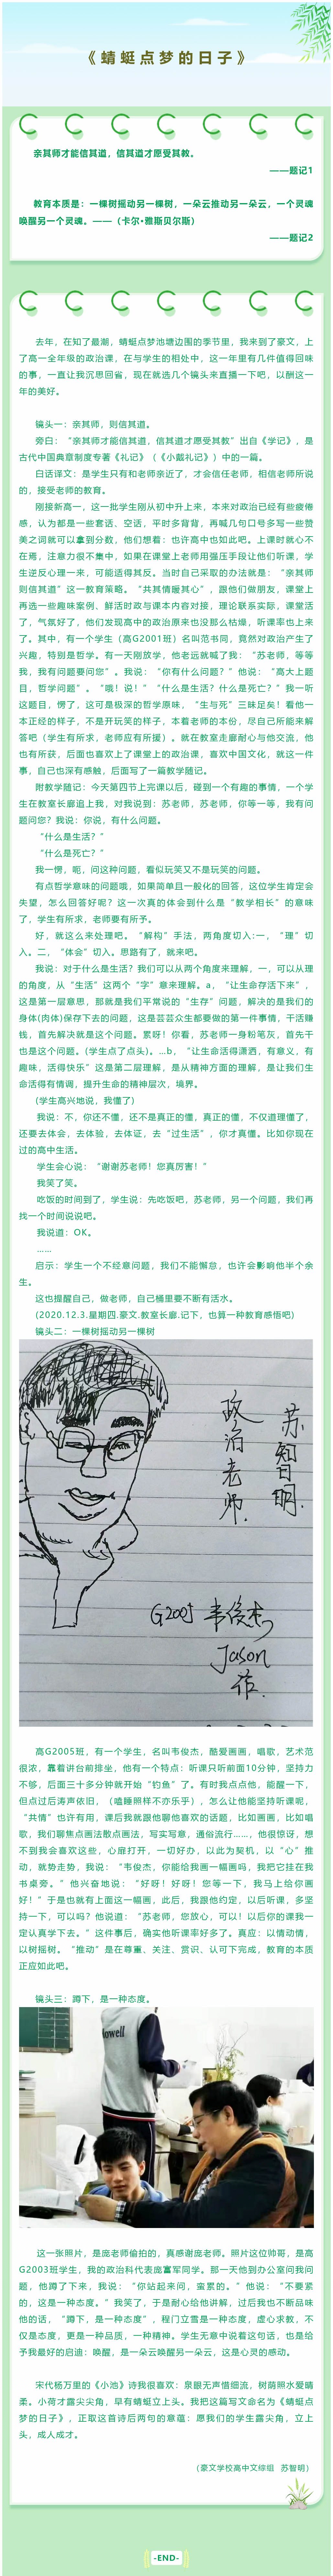 《蜻蜓点梦的日子》
亲其师才能信其道，信其道才愿受其教。
——题记1
教育本质是：一棵树摇动另一棵树，一朵云推动另一朵云，一个灵魂
唤醒另一个灵魂。——（卡尔•雅斯贝尔斯）
——题记2
去年，在知了最潮，蜻蜓点梦池塘边围的季节里，我来到了豪文，上
了高一全年级的政治课，在与学生的相处中，这一年里有几件值得回味
的事，一直让我沉思回省，现在就选几个镜头来直播一下吧，以酬这一
年的美好。
镜头一：亲其师，则信其道。
旁白：“亲其师才能信其道，信其道才愿受其教”出自《学记》，是
古代中国典章制度专著《礼记》（《小戴礼记》）中的一篇。
白话译文：是学生只有和老师亲近了，才会信任老师，相信老师所说
的，接受老师的教育。
刚接新高一，这一批学生刚从初中升上来，本来对政治已经有些疲倦
感，认为都是一些套话、空话，平时多背背，再喊几句口号多写一些赞
美之词就可以拿到分数，他们想着：也许高中也如此吧。上课时就心不
在焉，注意力很不集中，如果在课堂上老师用强压手段让他们听课，学
生逆反心理一来，可能适得其反。当时自己采取的办法就是：“亲其师
则信其道”这一教育策略。“共其情暖其心”，跟他们做朋友，课堂上
再选一些趣味案例，鲜活时政与课本内容对接，理论联系实际，课堂活
了，气氛好了，他们发现高中的政治原来也没那么枯燥，听课率也上来
了。其中，有一个学生（高G2001班）名叫范书同，竟然对政治产生了
兴趣，特别是哲学。有一天刚放学，他老远就喊了我：“苏老师，等等
我，我有问题要问您”。我说：“你有什么问题？”他说：“高大上题
目，哲学问题”。“哦！说！”“什么是生活？什么是死亡？”我一听
这题目，愣了，这可是极深的哲学原味，“生与死”三昧足矣！看他一
本正经的样子，不是开玩笑的样子，本着老师的本份，尽自己所能来解
答吧（学生有所求，老师应有所援）。就在教室走廊耐心与他交流，他
也有所获，后面也喜欢上了课堂上的政治课，喜欢中国文化，就这一件
事，自己也深有感触，后面写了一篇教学随记。
附教学随记：今天第四节上完课以后，碰到一个有趣的事情，一个学
生在教室长廊追上我，对我说到：苏老师，苏老师，你等一等，我有问
题问您？我说：你说，有什么问题。
“什么是生活？”
“什么是死亡？”
我一愣，呃，问这种问题，看似玩笑又不是玩笑的问题。
有点哲学意味的问题哦，如果简单且一般化的回答，这位学生肯定会
失望，怎么回答好呢？这一次真的体会到什么是“教学相长”的意味
了，学生有所求，老师要有所予。
好，就这么来处理吧。“解构”手法，两角度切入:一，“理”切
入。二，“体会”切入。思路有了，就来吧。
我说：对于什么是生活？我们可以从两个角度来理解，一，可以从理
的角度，从“生活”这两个“字”意来理解。a，“让生命存活下来”，
这是第一层意思，那就是我们平常说的“生存”问题，解决的是我们的
身体(肉体)保存下去的问题，这是芸芸众生都要做的第一件事情，干活赚
钱，首先解决就是这个问题。累呀！你看，苏老师一身粉笔灰，首先干
也是这个问题。(学生点了点头)。…b，“让生命活得潇洒，有意义，有
趣味，活得快乐”这是第二层理解，是从精神方面的理解，是让我们生
命活得有情调，提升生命的精神层次，境界。
(学生高兴地说，我懂了)
我说：不，你还不懂，还不是真正的懂，真正的懂，不仅道理懂了，
还要去体会，去体验，去体证，去“过生活”，你才真懂。比如你现在
过的高中生活。
学生会心说：“谢谢苏老师！您真厉害！”
我笑了笑。
吃饭的时间到了，学生说：先吃饭吧，苏老师，另一个问题，我们再
找一个时间说说吧。
我说道：OK。
……
启示：学生一个不经意问题，我们不能懈怠，也许会影响他半个余
生。
这也提醒自己，做老师，自己桶里要不断有活水。
(2020.12.3.星期四.豪文.教室长廊.记下，也算一种教育感悟吧)
镜头二：一棵树摇动另一棵树
苏智明
政治老师
G2005 韦俊杰
Jason
作
高G2005班，有一个学生，名叫韦俊杰，酷爱画画，唱歌，艺术范
很浓，靠着讲台前排坐，他有一个特点：听课只听前面10分钟，坚持力
不够，后面三十多分钟就开始“钓鱼”了。有时我点点他，能醒一下，
但点过后涛声依旧，（嗑睡照样不亦乐乎），怎么让他能坚持听课呢，
“共情”也许有用，课后我就跟他聊他喜欢的话题，比如画画，比如唱
歌，我们聊焦点画法散点画法，写实写意，通俗流行……，他很惊讶，想
不到我会喜欢这些，心扉打开，一切好办，以此为契机，以“心”推
动，就势走势，我说：“韦俊杰，你能给我画一幅画吗，我把它挂在我
书桌旁。”他兴奋地说：“好呀！好呀！您等一下，我马上给你画
好！”于是也就有上面这一幅画，此后，我跟他约定，以后听课，多坚
持一下，可以吗？他说道：“苏老师，您放心，可以！以后你的课我一
定认真学下去。”这件事后，确实他听课率好多了。真应：以情动情，
以树摇树。“推动”是在尊重、关注、赏识、认可下完成，教育的本质
正应如此吧。
镜头三：蹲下，是一种态度。
这一张照片，是庞老师偷拍的，真感谢庞老师。照片这位帅哥，是高
G2003班学生，我的政治科代表庞富军同学。那一天他到办公室问我问
题，他蹲了下来，我说：“你站起来问，蛮累的。”他说：“不要紧
的，这是一种态度。”我笑了，于是耐心给他讲解，过后我也不断品味
他的话，“蹲下，是一种态度”，程门立雪是一种态度，虚心求教，不
仅是态度，更是一种品质，一种精神。学生无意中说着这句话，也是给
予我最好的启迪：唤醒，是一朵云唤醒另一朵云，这是心灵的感动。
宋代杨万里的《小池》诗我很喜欢：泉眼无声惜细流，树荫照水爱晴
柔。小荷才露尖尖角，早有蜻蜓立上头。我把这篇写文命名为《蜻蜓点
梦的日子》，正取这首诗后两句的意蕴：愿我们的学生露尖角，立上
头，成人成才。
（豪文学校高中文综组 苏智明）
-END-